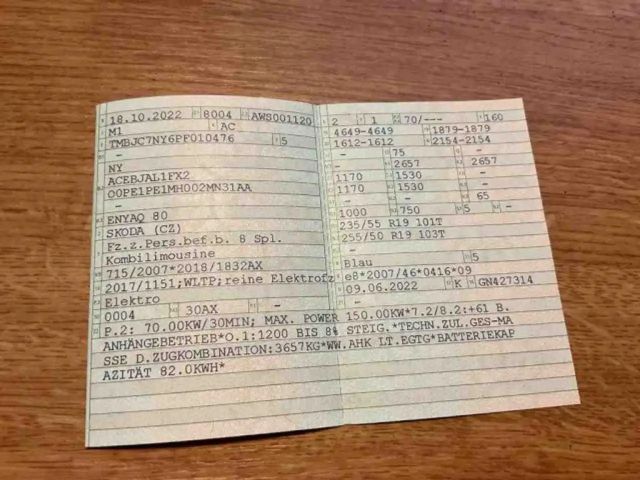 18.10.2022 8004 AWS001120
M1 AC
TMBJC7NY6PF010476 5
-
NY
ACEBJAL1FX2
00PE1PE1MH002MN31AA
-
ENYAQ 80
SKODA (CZ)
Fz.z.Pers.bef.b. 8 Spl.
Kombilimousine
715/2007*2018/1832AX
2017/1151;WLTP;reine Elektrofz
Elektro
0004 30AX -
2 1 70/--- 160
4649-4649 1879-1879
1612-1612 2154-2154
- 75 -
- 2657 2657
1170 1530 -
1170 1530 -
- - 65
1000 750 5 -
235/55 R19 101T
255/50 R19 103T
-
Blau 5
e8*2007/46*0416*09
09.06.2022 K GN427314
- -
P.2: 70.00KW/30MIN; MAX. POWER 150.00KW*7.2/8.2:+61 B.
ANHÄNGEBETRIEB*O.1:1200 BIS 8% STEIG.*TECHN.ZUL.GES-MA
SSE D.ZUGKOMBINATION:3657KG*WW.AHK LT.EGTG*BATTERIEKAP
AZITÄT 82.0KWH*